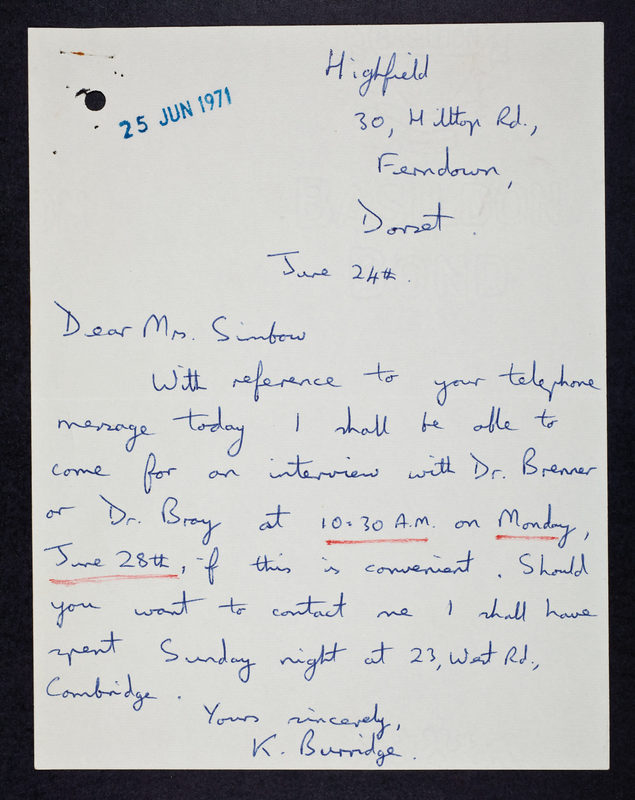 Highfield
25 JUN 1971
30, Hilltop Rd.,
Ferndown,
Dorset.
June 24th.
Dear Mrs. Simbow
With reference to your telephone
message today I shall be able to
come for an interview with Dr. Brenner
or Dr. Bray at 10:30 A.M. on Monday,
June 28th, if this is convenient. Should
you want to contact me I shall have
spent Sunday night at 23, West Rd.,
Cambridge.
Yours sincerely,
K. Burridge.